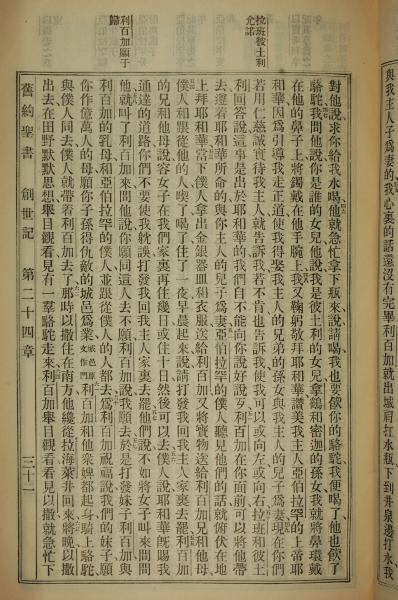 與我主人子爲妻的我心裏的話還沒有完畢利百加就出城肩扛水瓶下到井泉邊打水我
拉班彼土利
允諾
利百加願于
歸
對他說求你給我水喝他就急忙拿下瓶來說請喝我也要飲你的駱駝我便喝了他也飲了
駱駝我問他說你是誰的女兒他說我是彼土利的女兒拿鶴和密迦的孫女我就將鼻環戴
在他的鼻子上將鐲戴在他手腕上我又鞠躬敬拜耶和華讚美我主人亞伯拉罕的上帝耶
和華因爲引導我走正道使我得娶我主人的兄弟的孫女與我主人的兒子爲妻現在你們
若用仁慈誠實待我主人就告訴我若不肯也告訴我使我可以或向左或向右拉班和彼土
利回答說這事是出於耶和華的我們自不能向你說好說歹利百加在你面前可以將他帶
去遵着耶和華所命的與你主人的兒子爲妻亞伯拉罕的僕人聽見他們的話就俯伏在地
上拜耶和華當下僕人拿出金銀器皿和衣服送給利百加又將寶物送給利百加兄和他母
僕人和跟從他的人喫了喝了住了一夜早晨起來說請打發我回我主人家裏去罷利百加
的兄和他母說容女子在我們家裏再住幾日或住十日然後可以去僕人說耶和華旣賜我
通達的道路你們不要使我躭誤打發我回我主人家裏去罷他們說不如將女子叫來問問
他就叫了利百加來問他說你願同這人去不願利百加說我願去於是打發妹子利百加與
利百加的乳母和亞伯拉罕的僕人並跟從僕人的人都去爲利百加祝福說我們的妹子願
你作億萬人的母願你子孫得仇敵的城邑爲業城邑原文作門利百加和他衆婢都起身騎上駱駝
與僕人同去僕人就帶着利百加去了那時以撒住在南方他纔從拉海萊井回來將晚以撒
出去在田野默默思想舉目觀看見有一羣駱駝走來利百加舉目觀看看見以撒就急忙下
舊約聖書 創世記 第二十四章 三十一